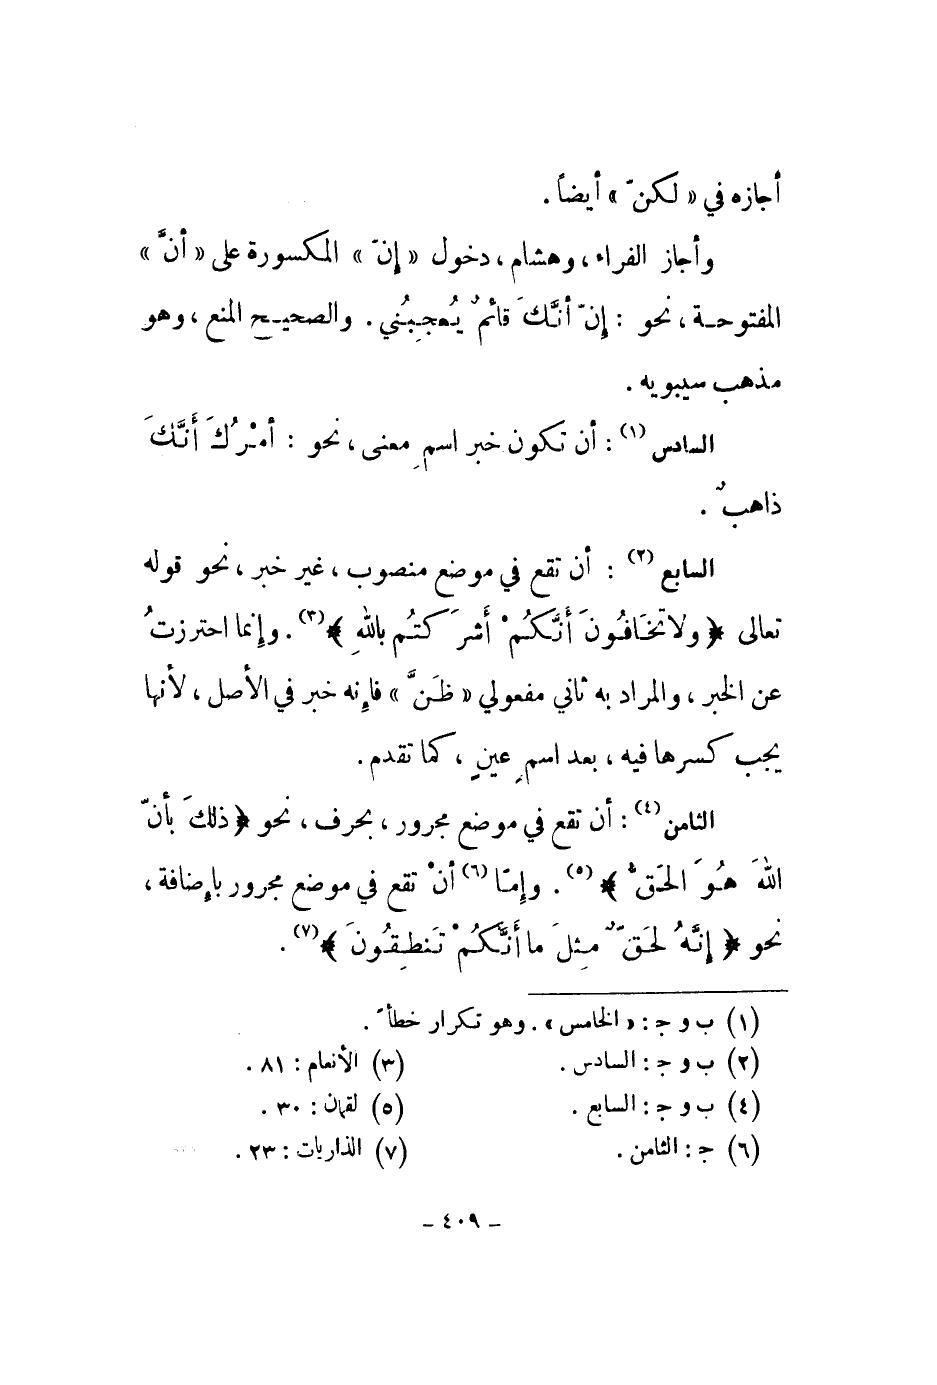 أجازه في « لكنّ » أيضاً .
وأجاز الفراء ، وهشام ، دخول « إنّ » المكسورة على « أنَّ »
المفتوحـة ، نحو : إنّ أنَّكَ قائمٌ يُعجِبُني . والصحيـح المنع ، وهو
مذهب سيبويه .
السادس (١) : أن تكون خبر اسمِ معنى ، نحو : أمْرُكَ أَنَّكَ
ذاهبٌ .
السابع (٢) : أن تقع في موضع منصوب ، غير خبر ، نحو قوله
تعالى ﴿ ولا تَخَافُونَ أَنَّكُمْ أشرَكتُم باللهِ ﴾(٣) . وإنما احترزتُ
عن الخبر ، والمراد به ثاني مفعولي « ظَنَّ » فإنه خبر في الأصل ، لأنها
يجب كسرها فيه ، بعد اسمِ عينٍ ، كما تقدم .
الثامن (٤) : أن تقع في موضع مجرور ، بحرف ، نحو ﴿ ذلكَ بأنّ
اللهَ هُوَ الحَقُّ ﴾ (٥) . وإمّا (٦) أنْ تقع في موضع مجرور بإضافة ،
نحو ﴿ إنَّهُ لحَقٌّ مِثلَ ما أنَّكُمْ تَنطِقُونَ ﴾(٧) .
(١) ب و ج : « الخامس » . وهو تكرار خطأ .
(٢) ب و ج : السادس . (٣) الأنعام : ٨١ .
(٤) ب و ج : السابع . (٥) لقمان : ٣٠ .
(٦) ج : الثامن . (٧) الذاريات : ٢٣ .
– ٤٠٩ –